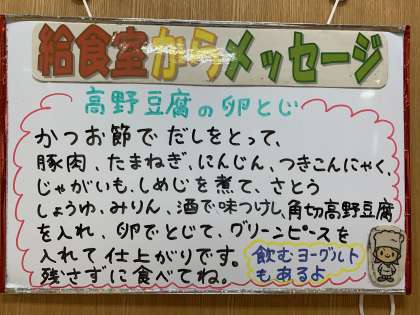 給食室からメッセージ
高野豆腐の卵とじ
かつお節でだしをとって、
豚肉、たまねぎ、にんじん、つきこんにゃく、
じゃがいも、しめじを煮て、さとう
しょうゆ、みりん、酒で味つけし、角切高野豆腐
を入れ、卵でとじて、グリーンピースを
入れて仕上がりです。
残さずに食べてね。
飲むヨーグルト
もあるよ